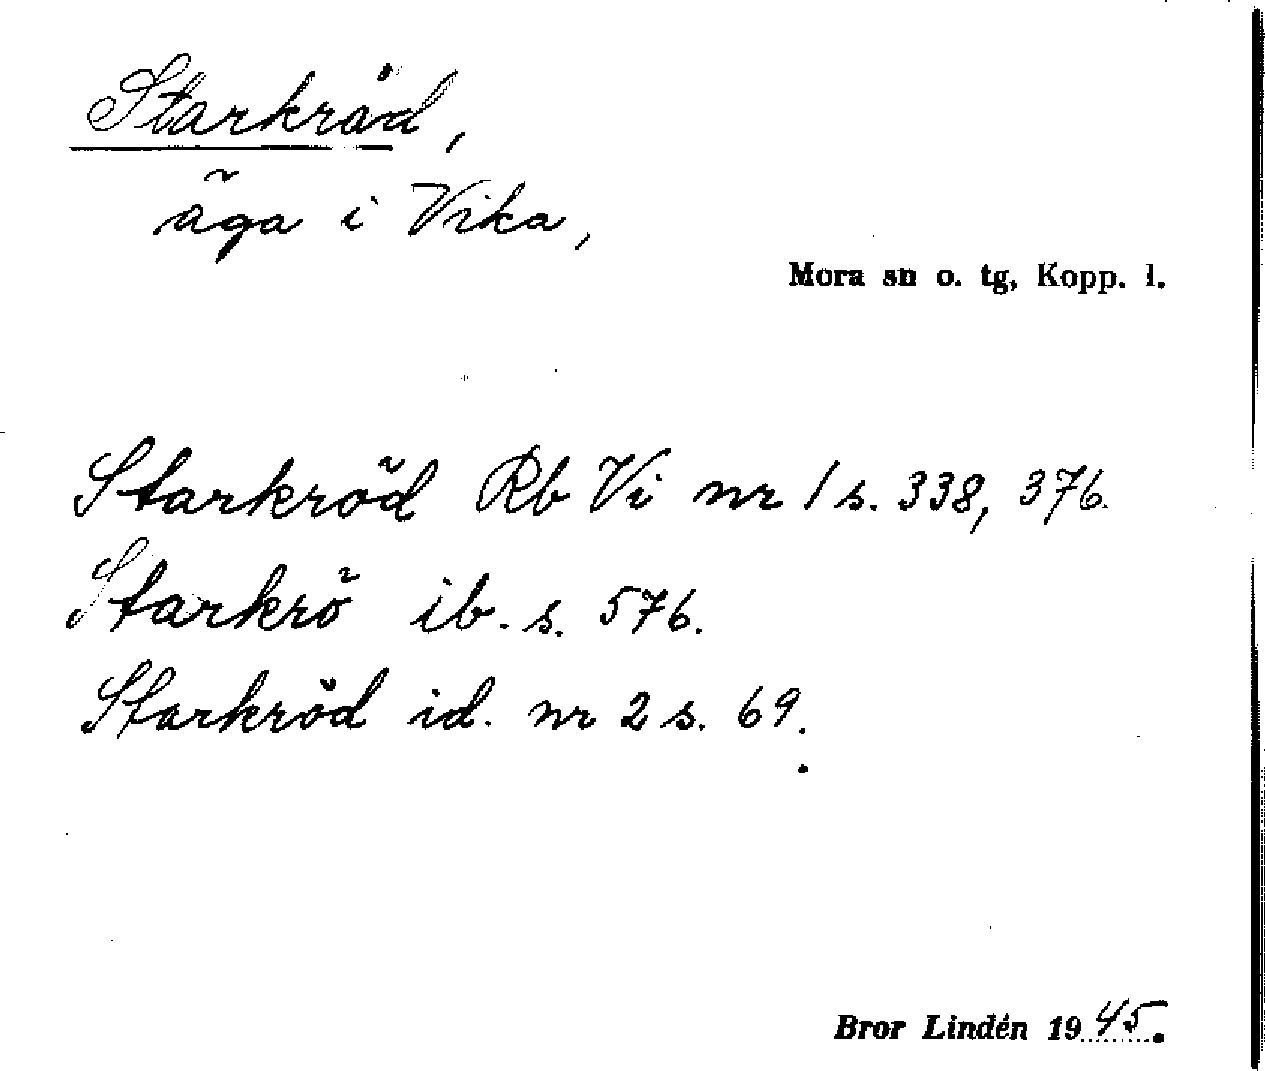 Starkröd,
äga i Vika,
Mora sn o. tg, Kopp. l.
Starkröd Rb Vi nr 1 s. 338, 376.
Starkrö ib. s. 576.
Starkröd id. nr 2 s. 69.
Bror Lindén 1945.